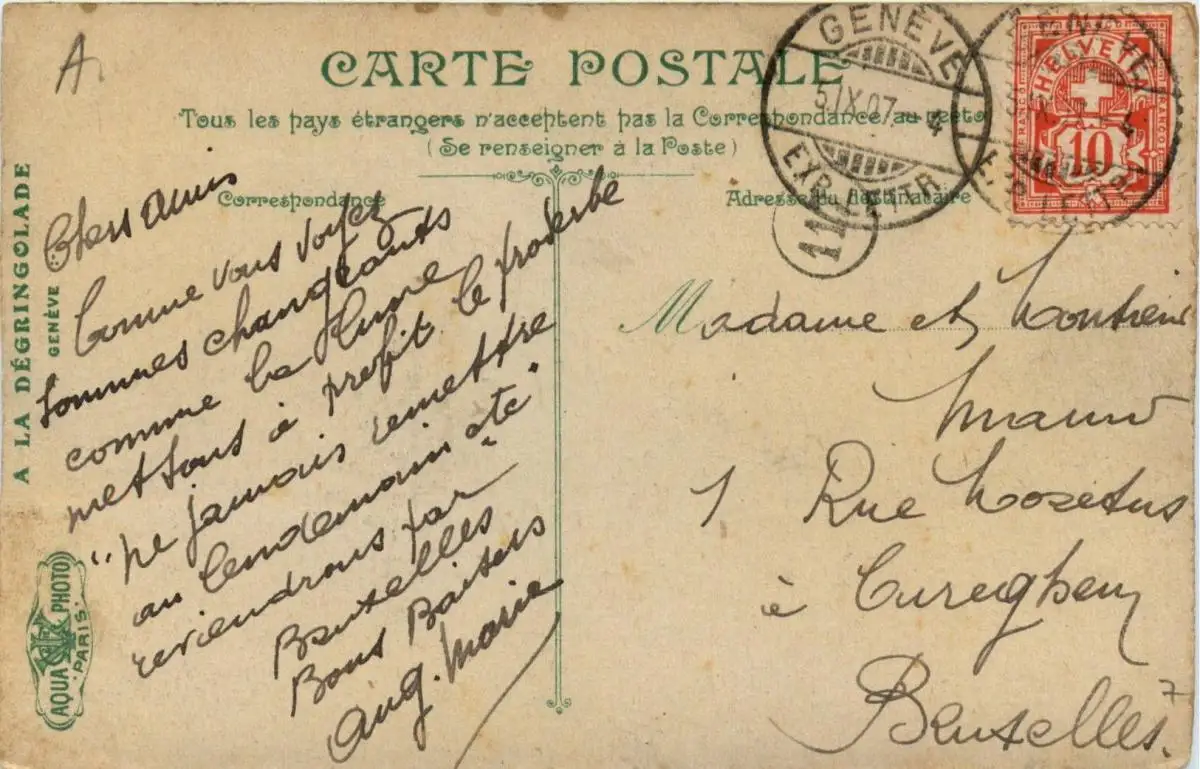 A.
CARTE POSTALE
Tous les pays étrangers n'acceptent pas la Correspondance au recto
(Se renseigner à la Poste)
Correspondance
Adresse du destinataire
A LA DÉGRINGOLADE
GENÈVE
AQUA PHOTO
PARIS
GENÈVE
5.IX.07.-4
EXP. LETTR.
11
HELVETIA
FRANCO
10
GENÈVE
EXP. LETTR.
Chers amis
Comme vous voyez
sommes changeants
comme la lune
mettons à profit le proverbe
"ne jamais remettre
au lendemain etc"
reviendrons par
Bruxelles
Bons Baisers
Aug. Marie
Madame et Monsieur
1 Rue
à Cureghem
Bruxelles.
7